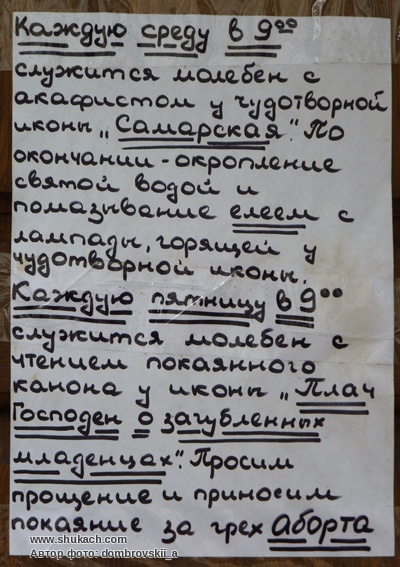 Каждую среду в 9⁰⁰
служится молебен с
акафистом у чудотворной
иконы „Самарская". По
окончании - окропление
святой водой и
помазывание елеем с
лампады, горящей у
чудотворной иконы.
Каждую пятницу в 9⁰⁰
служится молебен с
чтением покаянного
канона у иконы „Плач
Господен о загубленных
младенцах". Просим
прощение и приносим
покаяние за грех аборта
www.shukach.com
Автор фото: dombrovskii_a